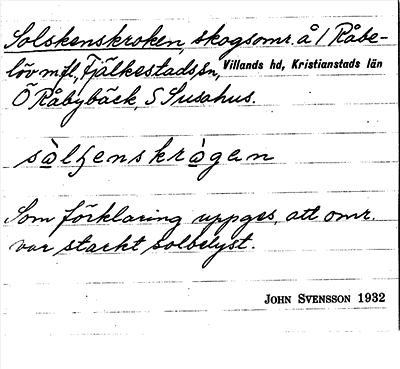 Solskenskroken, skogsomr. å 1 Råbe-
löv m.fl., Fjälkestads sn, Villands hd, Kristianstads län
Ö Råbybäck, S Susahus.
sòlʃenskrògen
Som förklaring uppges, att omr.
var starkt solbelyst.
JOHN SVENSSON 1932